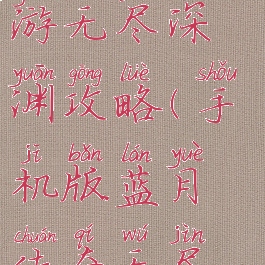 游无尽深
yuān gōng lüè shǒu
渊攻略(手
jī bǎn lán yuè
机版蓝月
chuán qí wú jìn